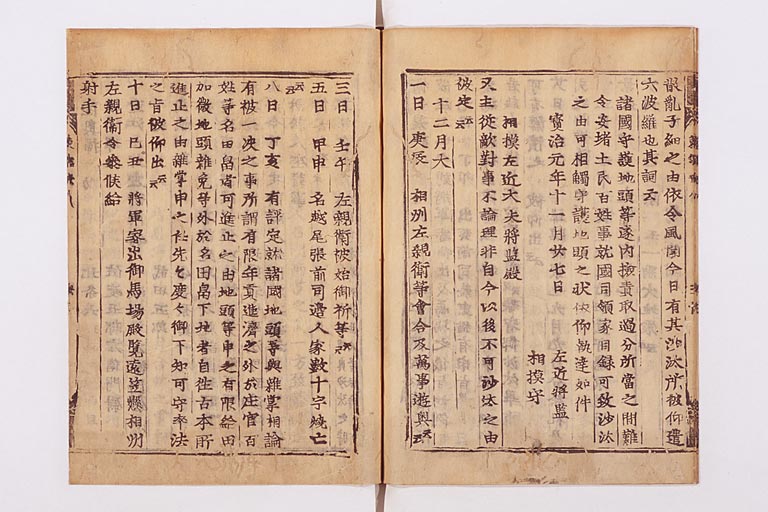 散亂子細之由依令風聞今日有其沙汰所被仰遣
六波羅也其詞云
諸國守護地頭等遂內檢責取過分所當之間難
令安堵土民百姓事就國司領家目録可致沙汰
之由可相觸守護地頭之状依仰執達如件
寳治元年十一月廿七日
左近将監
相摸守
相摸左近大夫将監殿
又主従敵對事不論理非自今以後不可沙汰之由
被定云云
十二月大
一日 庚辰 相州左親衛等會合及萬事遊興云云
三日 壬午 左親衛被始御祈等云云
五日 甲申 名越尾張前司邊人家數十宇燒亡
云云
八日 丁亥 有評定就諸國地頭等與雜掌相論
有被一決之事所謂有限年貢進濟之外於庄官百
姓等名田畠者可進止之由地頭等申之有限給田
加徴地頭雜免等外於名田畠下地者自往古本所
進止之由雜掌申之任先々度々御下知可守率法
之旨被仰出云云
十日 己丑 将軍家出御馬場殿覧遠笠懸相州
左親衛令参候給
射手